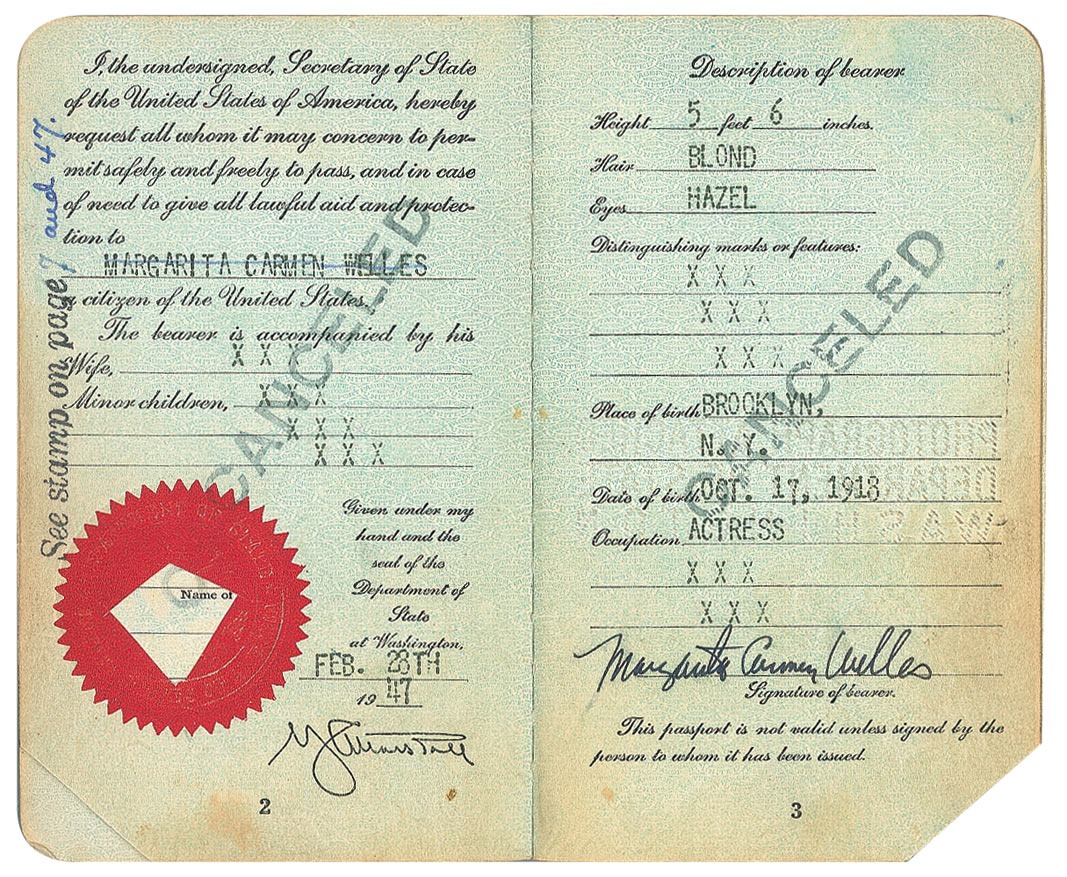 I, the undersigned, Secretary of State
of the United States of America, hereby
request all whom it may concern to per-
mit safely and freely to pass, and in case
of need to give all lawful aid and protec-
tion to
MARGARITA CARMEN WELLES
a citizen of the United States.
The bearer is accompanied by his
Wife, X X X
Minor children, X X X
X X X
X X X
Given under my
hand and the
seal of the
Department of
State
at Washington,
FEB. 28TH
19 47
Name of
See stamp on page 7 and 47.
CANCELED
2
Description of bearer
Height 5 feet 6 inches.
Hair BLOND
Eyes HAZEL
Distinguishing marks or features:
X X X
X X X
X X X
Place of birth BROOKLYN,
N. Y.
Date of birth OCT. 17, 1918
Occupation ACTRESS
X X X
X X X
Margarita Carmen Welles
Signature of bearer.
This passport is not valid unless signed by the
person to whom it has been issued.
CANCELED
3